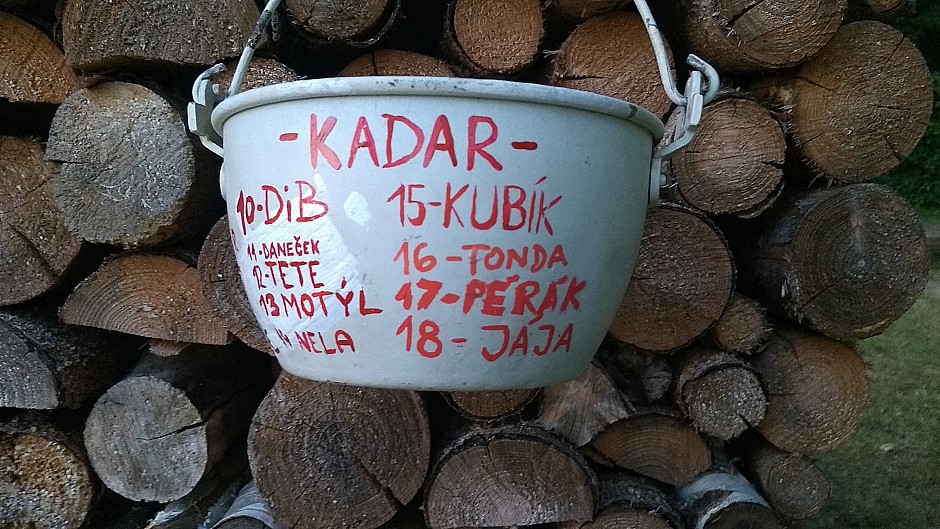 -KADAR-
10-DiB
11-DANEČEK
12-TETE
13 MOTÝL
14 NELA
15-KUBÍK
16-TONDA
17-PÉRÁK
18-JÁJA